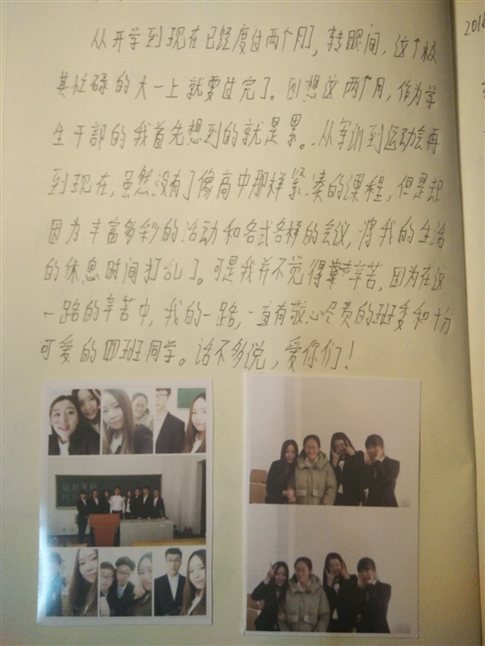 从开学到现在已经度过两个月,转眼间,这个极
其忙碌的大一上就要过完了。回想这两个月,作为学
生干部的我首先想到的就是累。从军训到运动会再
到现在,虽然没有了像高中那样紧凑的课程,但是却
因为丰富多彩的活动和各式各样的会议,将我的生活
的休息时间打乱了。可是我并不觉得辛苦,因为在这
一路的辛苦中,我的一路,一直有敬心尽责的班委和十分
可爱的四班同学。话不多说,爱你们!
201